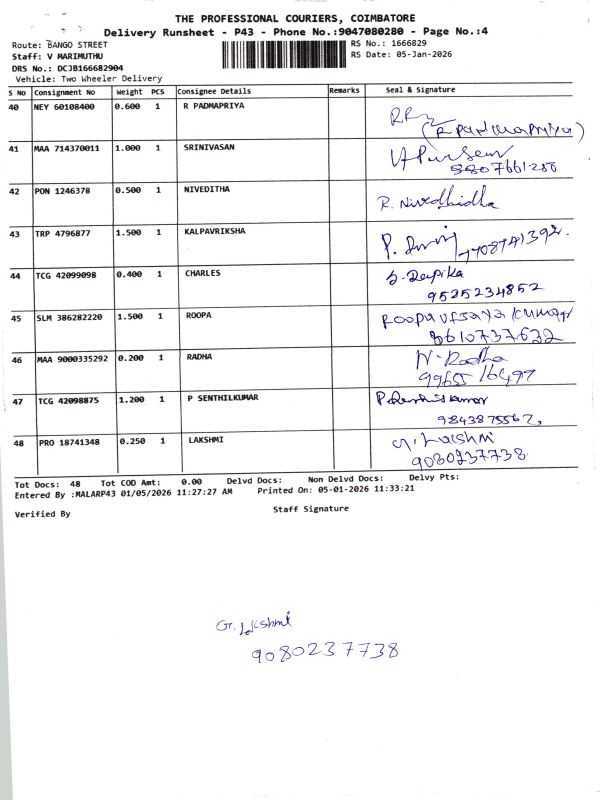 THE PROFESSIONAL COURIERS, COIMBATORE
Delivery Runsheet - P43 - Phone No.:9047080280 - Page No.:4
Route: BANGO STREET
Staff: V MARIMUTHU
DRS No.: DCJB166682904
Vehicle: Two Wheeler Delivery
RS No.: 1666829
RS Date: 05-Jan-2026
S No Consignment No Weight PCS Consignee Details Remarks Seal & Signature
40 NEY 60108400 0.600 1 R PADMAPRIYA
41 MAA 714370011 1.000 1 SRINIVASAN
42 PON 1246378 0.500 1 NIVEDITHA R. Nivedhidha
43 TRP 4796877 1.500 1 KALPAVRIKSHA
44 TCG 42099098 0.400 1 CHARLES S. Deepika
9525234852
45 SLM 386282220 1.500 1 ROOPA
8610737632
46 MAA 9000335292 0.200 1 RADHA N. Radha
9965516497
47 TCG 42098875 1.200 1 P SENTHILKUMAR
9843875562,
48 PRO 18741348 0.250 1 LAKSHMI G. Lakshmi
9080237738
Tot Docs: 48 Tot COD Amt: 0.00 Delvd Docs: Non Delvd Docs: Delvy Pts:
Entered By :MALARP43 01/05/2026 11:27:27 AM Printed On: 05-01-2026 11:33:21
Verified By Staff Signature
G. Lakshmi
9080237738